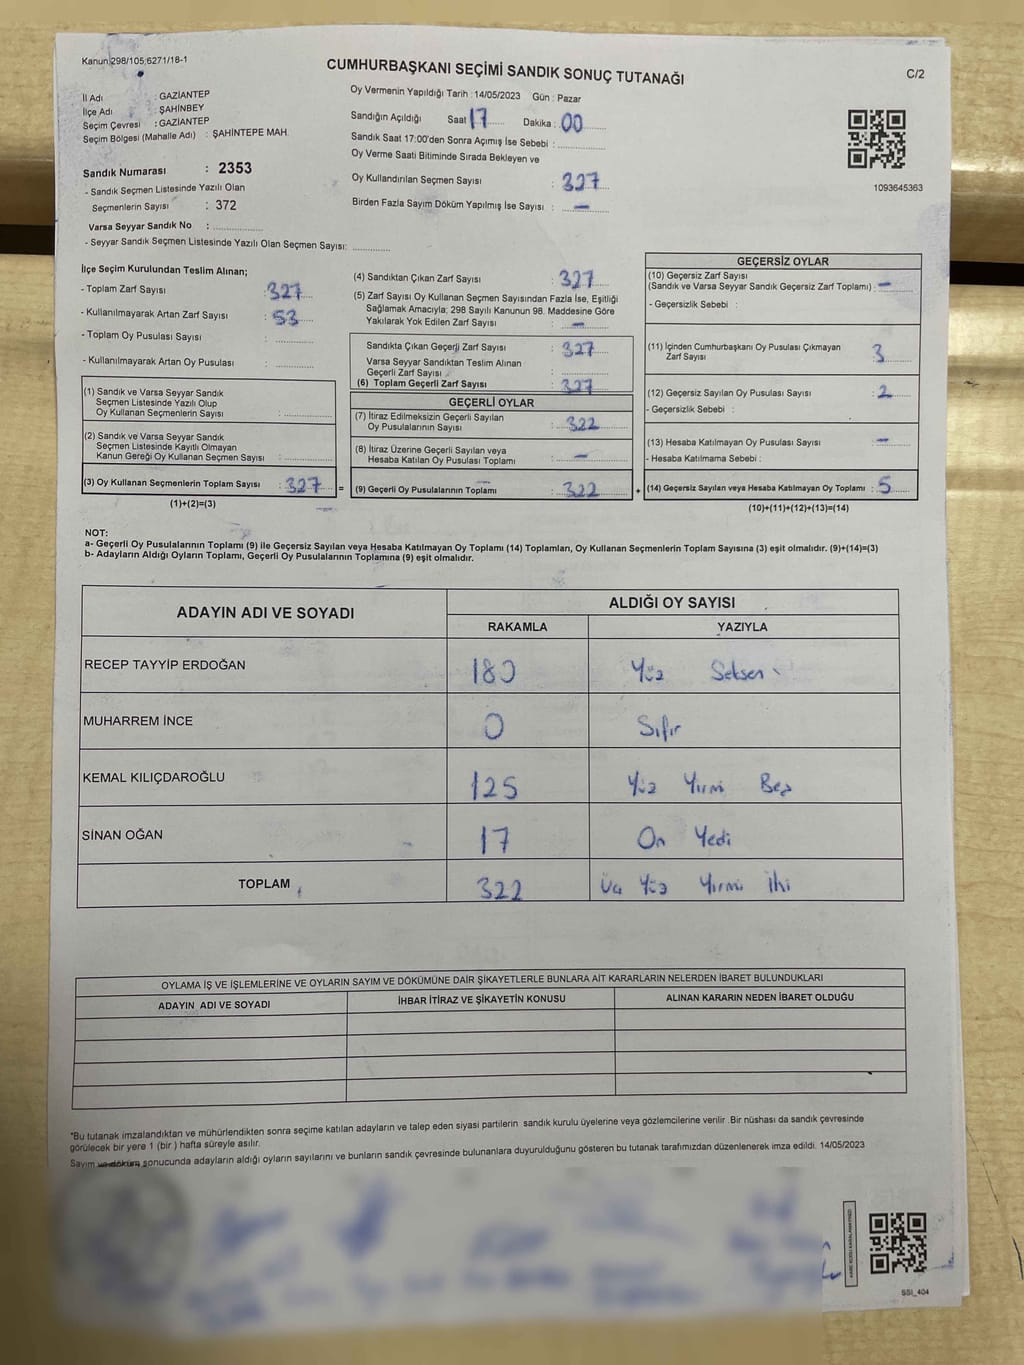 Kanun:298/105,6271/18-1
CUMHURBAŞKANI SEÇİMİ SANDIK SONUÇ TUTANAĞI
C/2
İl Adı : GAZİANTEP
İlçe Adı : ŞAHİNBEY
Seçim Çevresi : GAZİANTEP
Seçim Bölgesi (Mahalle Adı) : ŞAHİNTEPE MAH.
Sandık Numarası : 2353
- Sandık Seçmen Listesinde Yazılı Olan
Seçmenlerin Sayısı : 372
Varsa Seyyar Sandık No :
- Seyyar Sandık Seçmen Listesinde Yazılı Olan Seçmen Sayısı:
Oy Vermenin Yapıldığı Tarih :14/05/2023 Gün : Pazar
Sandığın Açıldığı Saat 17 Dakika : 00
Sandık Saat 17:00'den Sonra Açımış İse Sebebi :
Oy Verme Saati Bitiminde Sırada Bekleyen ve
Oy Kullandırılan Seçmen Sayısı : 327
Birden Fazla Sayım Döküm Yapılmış İse Sayısı : -
1093645363
İlçe Seçim Kurulundan Teslim Alınan;
- Toplam Zarf Sayısı : 327
- Kullanılmayarak Artan Zarf Sayısı : 53
- Toplam Oy Pusulası Sayısı :
- Kullanılmayarak Artan Oy Pusulası :
(1) Sandık ve Varsa Seyyar Sandık
Seçmen Listesinde Yazılı Olup
Oy Kullanan Seçmenlerin Sayısı :
(2) Sandık ve Varsa Seyyar Sandık
Seçmen Listesinde Kayıtlı Olmayan
Kanun Gereği Oy Kullanan Seçmen Sayısı :
(3) Oy Kullanan Seçmenlerin Toplam Sayısı : 327 =
(1)+(2)=(3)
(4) Sandıktan Çıkan Zarf Sayısı : 327
(5) Zarf Sayısı Oy Kullanan Seçmen Sayısından Fazla İse, Eşitliği
Sağlamak Amacıyla; 298 Sayılı Kanunun 98. Maddesine Göre
Yakılarak Yok Edilen Zarf Sayısı : -
Sandıkta Çıkan Geçerli Zarf Sayısı : 327
Varsa Seyyar Sandıktan Teslim Alınan
Geçerli Zarf Sayısı :
(6) Toplam Geçerli Zarf Sayısı : 327
GEÇERLİ OYLAR
(7) İtiraz Edilmeksizin Geçerli Sayılan
Oy Pusulalarının Sayısı : 322
(8) İtiraz Üzerine Geçerli Sayılan veya
Hesaba Katılan Oy Pusulası Toplamı : -
(9) Geçerli Oy Pusulalarının Toplamı : 322 +
GEÇERSİZ OYLAR
(10) Geçersiz Zarf Sayısı
(Sandık ve Varsa Seyyar Sandık Geçersiz Zarf Toplamı) : -
- Geçersizlik Sebebi :
(11) İçinden Cumhurbaşkanı Oy Pusulası Çıkmayan
Zarf Sayısı 3
(12) Geçersiz Sayılan Oy Pusulası Sayısı : 2
- Geçersizlik Sebebi :
(13) Hesaba Katılmayan Oy Pusulası Sayısı : -
- Hesaba Katılmama Sebebi :
(14) Geçersiz Sayılan veya Hesaba Katılmayan Oy Toplamı : 5
(10)+(11)+(12)+(13)=(14)
NOT:
a- Geçerli Oy Pusulalarının Toplamı (9) ile Geçersiz Sayılan veya Hesaba Katılmayan Oy Toplamı (14) Toplamları, Oy Kullanan Seçmenlerin Toplam Sayısına (3) eşit olmalıdır. (9)+(14)=(3)
b- Adayların Aldığı Oyların Toplamı, Geçerli Oy Pusulalarının Toplamına (9) eşit olmalıdır.
ADAYIN ADI VE SOYADI
ALDIĞI OY SAYISI
RAKAMLA YAZIYLA
RECEP TAYYİP ERDOĞAN 180 Yüz Seksen
MUHARREM İNCE 0 Sıfır
KEMAL KILIÇDAROĞLU 125 Yüz Yirmi Beş
SİNAN OĞAN 17 On Yedi
TOPLAM 322 Üç Yüz Yirmi İki
OYLAMA İŞ VE İŞLEMLERİNE VE OYLARIN SAYIM VE DÖKÜMÜNE DAİR ŞİKAYETLERLE BUNLARA AİT KARARLARIN NELERDEN İBARET BULUNDUKLARI
ADAYIN ADI VE SOYADI İHBAR İTİRAZ VE ŞİKAYETİN KONUSU ALINAN KARARIN NEDEN İBARET OLDUĞU
*Bu tutanak imzalandıktan ve mühürlendikten sonra seçime katılan adayların ve talep eden siyasi partilerin sandık kurulu üyelerine veya gözlemcilerine verilir .Bir nüshası da sandık çevresinde
görülecek bir yere 1 (bir ) hafta süreyle asılır.
Sayım ve döküm sonucunda adayların aldığı oyların sayılarını ve bunların sandık çevresinde bulunanlara duyurulduğunu gösteren bu tutanak tarafımızdan düzenlenerek imza edildi. 14/05/2023
SSI_404